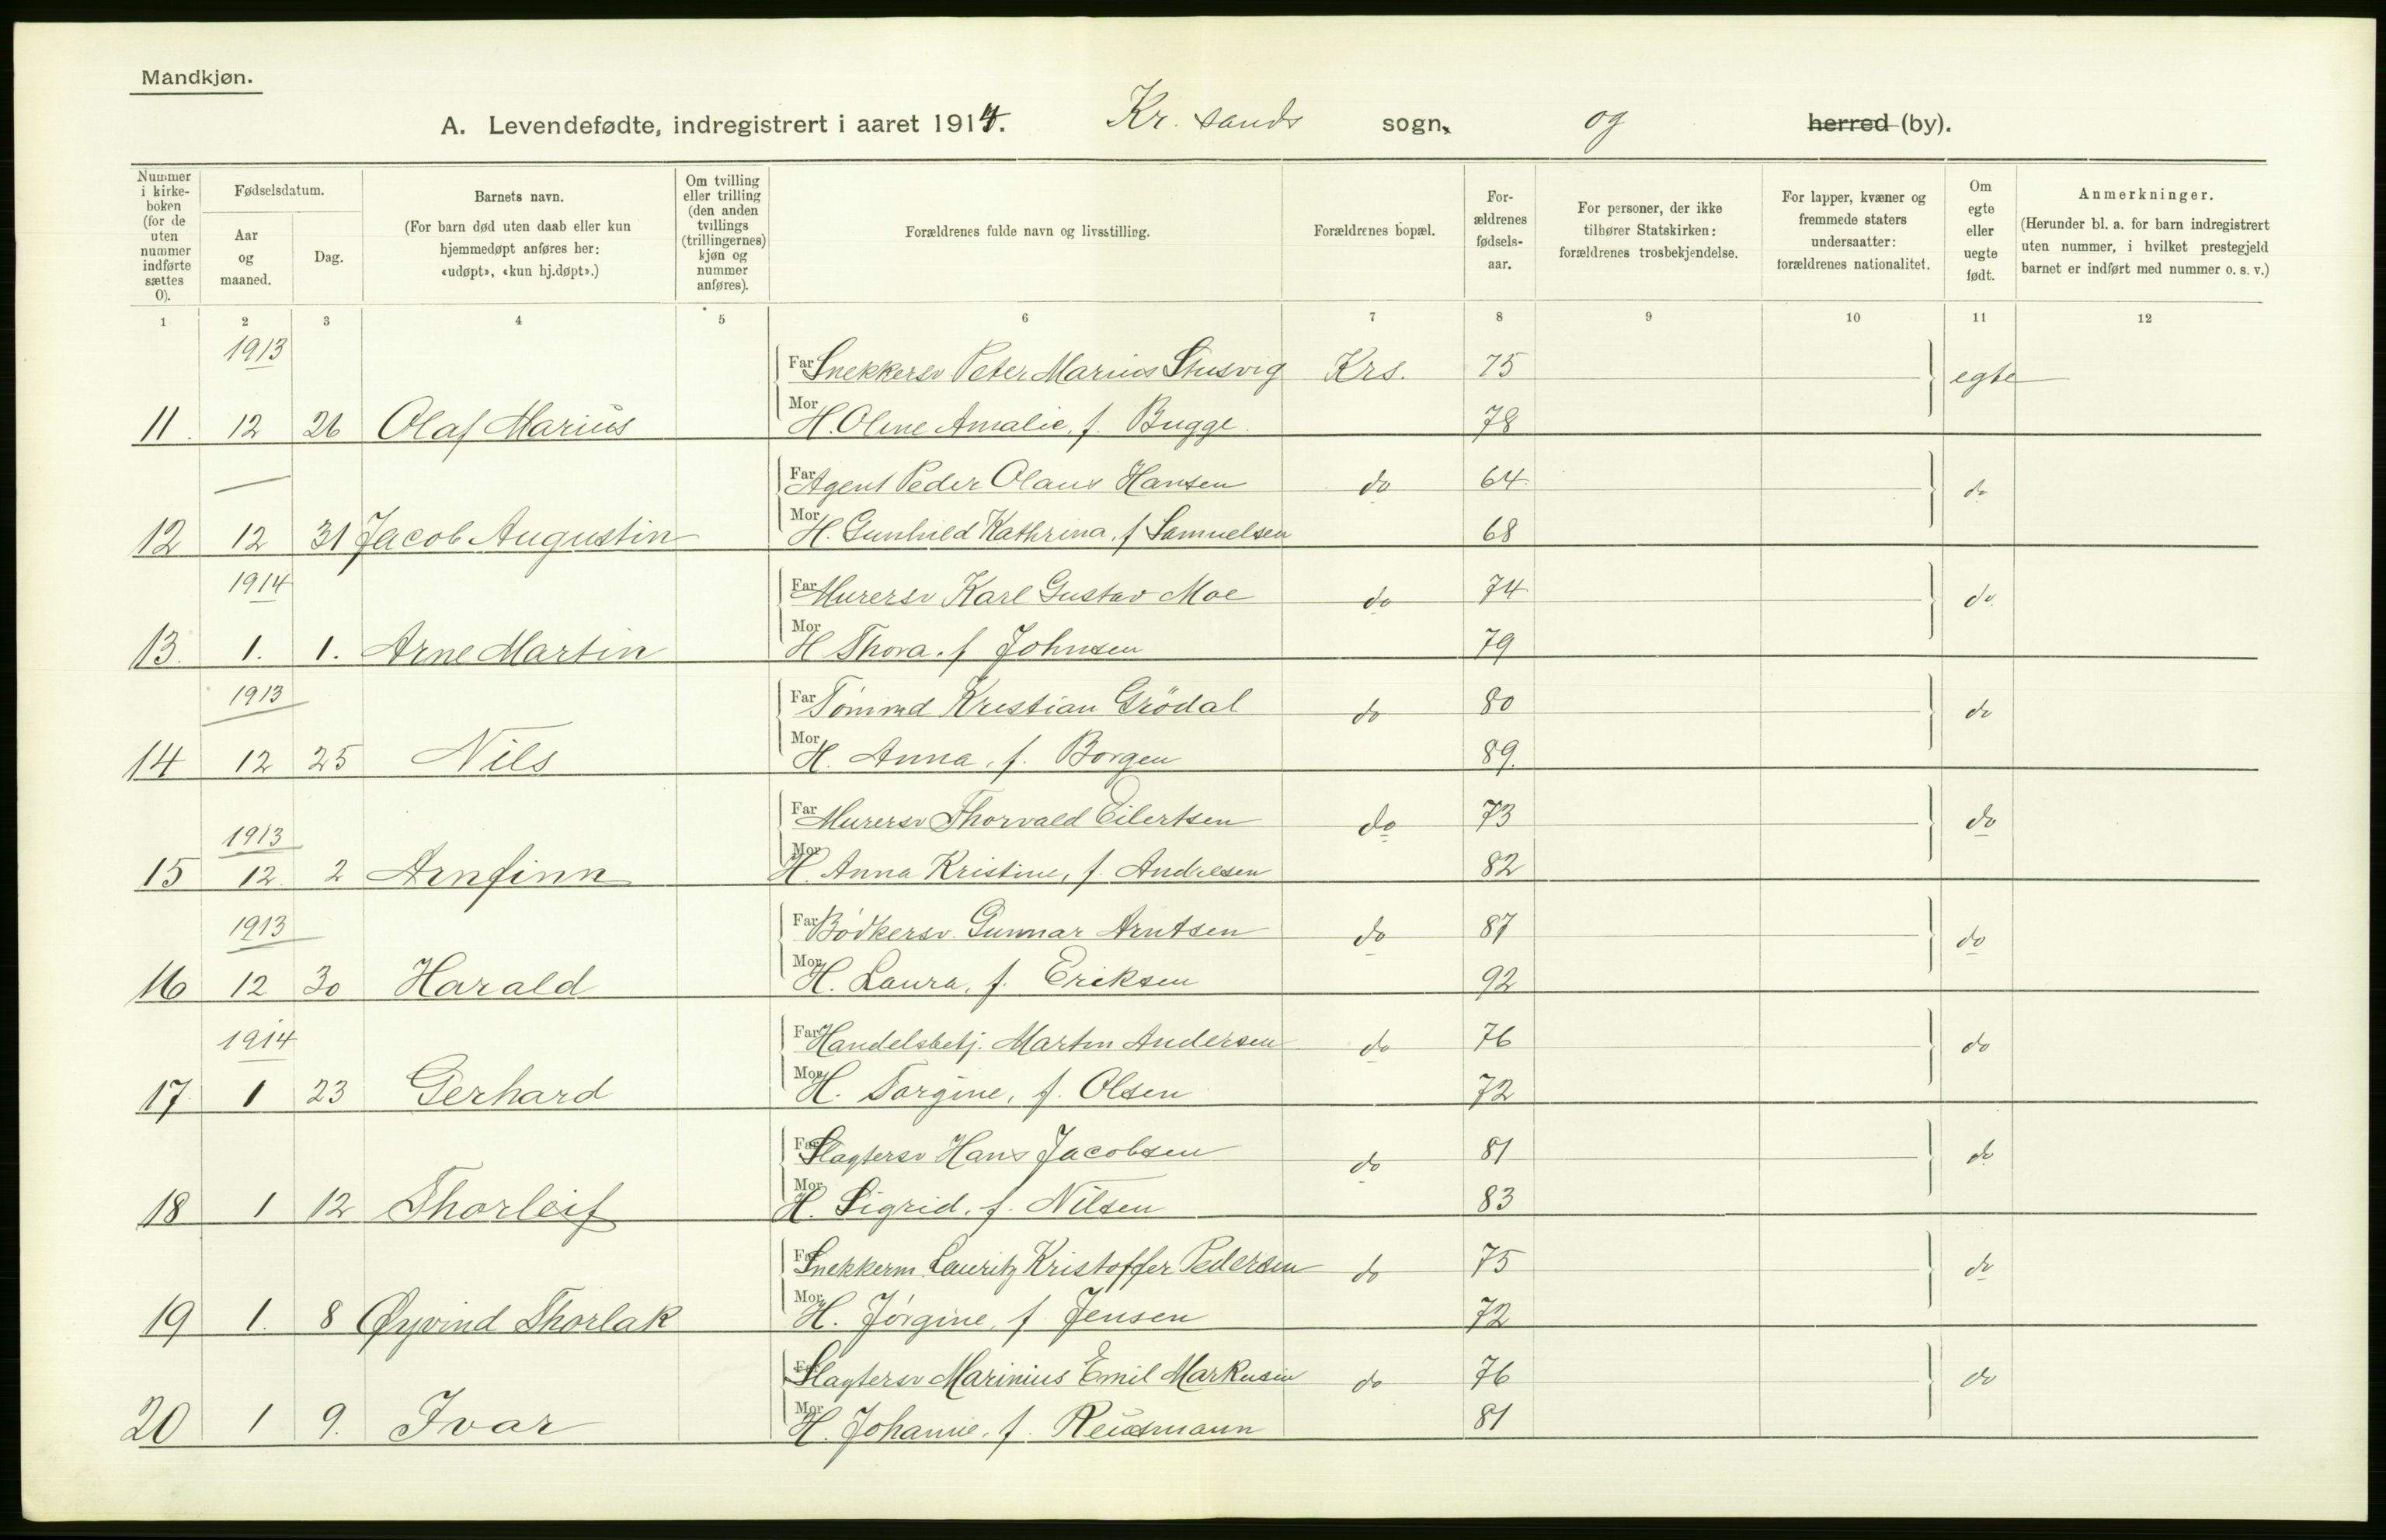 Mandkjøn.
A. Levendefødte, indregistrert i aaret 1914. Kr. sands sogn, og herred (by).
Nummer i kirke-boken (for de uten nummer indførte sættes 0).
Fødselsdatum.
Aar og maaned.
Dag.
Barnets navn.
(For barn død uten daab eller kun hjemmedøpt anføres her: «udøpt», «kun hj.døpt».)
Om tvilling eller trilling (den anden tvillings (trillingernes) kjøn og nummer anføres).
Forældrenes fulde navn og livsstilling.
Forældrenes bopæl.
For-ældrenes fødsels-aar.
For personer, der ikke tilhører Statskirken: forældrenes trosbekjendelse.
For lapper, kvæner og fremmede staters undersaatter: forældrenes nationalitet.
Om egte eller uegte født.
Anmerkninger.
(Herunder bl. a. for barn indregistrert uten nummer, i hvilket prestegjeld barnet er indført med nummer o. s. v.)
1 2 3 4 5 6 7 8 9 10 11 12
1913
Far Snekkersv Peter Marius Krs. 75 egte
11. 12 26 Olaf Marius Mor H. Oline Amalie, f. Bugge. 78
Far Agent Peder Olaus Hansen do 64 do
12 12 31 Jacob Augustin Mor H. Gunhild Kathrina, f Samuelsen 68
1914
Far Murersv Karl Gustav Moe do 74 do
13. 1. 1. Arne Martin Mor H Thora, f Johnsen 79
1913
Far Tømmd Kristian Grödal do 80 do
14 12 25 Nils Mor H. Anna, f. Borgen 89.
Far Murersv Thorvald Eilertsen do 73 do
1913
15 12. 2 Arnfinn Mor H. Anna Kristine, f. Andresen 82
1913
Far Bødkersv. Gunnar Arntsen do 87 do
16 12 30 Harald Mor H. Laura, f. Eriksen 92
1914
Far Handelsbetj. Martin Andersen do 76 do
17 1 23 Gerhard Mor H. Torgine, f. Olsen 72
Far Slagtersv Hans Jacobsen do 81 do
18 1 12 Thorleif Mor H. Sigrid, f. Nilsen 83
Far Snekkerm. Lauritz Kristoffer Pedersen do 75 do
19 1. 8 Øyvind Thorlak Mor H. Jørgine, f. Jensen 72
Far Slagtersv Marinius Emil Markusen do 76 do
20 1 9. Ivar Mor H. Johanne, f. 81